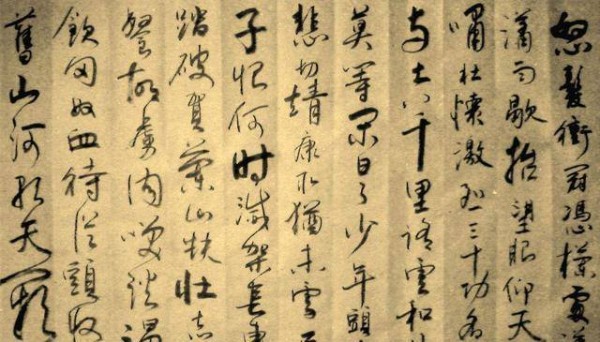 怒髮衝冠憑欄處瀟
瀟雨歇抬望眼仰天
嘯壯懷激烈三十功名
与土八千里路雲和
莫等闲白了少年頭
悲切靖康恥猶未雪
子恨何时滅架長車
踏破賀蘭山缺壯志
餐胡虜肉笑談渴
飲匈奴血待從頭收
舊山河朝天闕